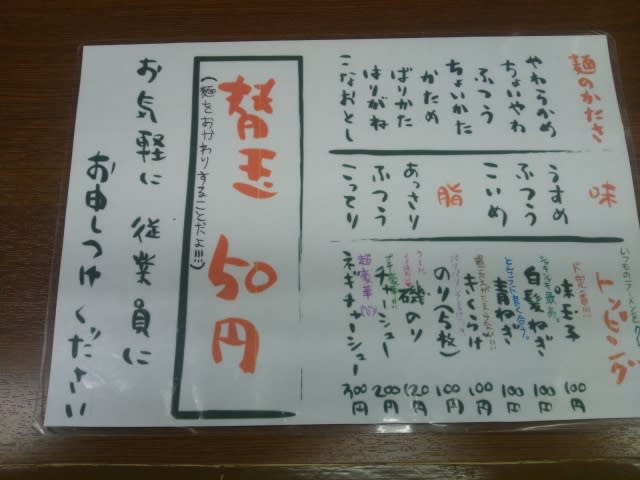 麺のかたさ
やわらかめ
ちょいやわ
ふつう
ちょいかた
かため
ばりかた
はりがね
こなおとし
味
うすめ
ふつう
こいめ
脂
あっさり
ふつう
こってり
トッピング
ド定番!!!
味玉子 100円
白髪ねぎ 100円
青ねぎ 100円
きくらげ 100円
のり(5枚) 100円
磯のり 120円
チャーシュー 200円
超豪華
ネギチャーシュー 300円
替玉 50円
(麺をおかわりすることだよ!!!)
お気軽に 従業員に
お申しつけ ください